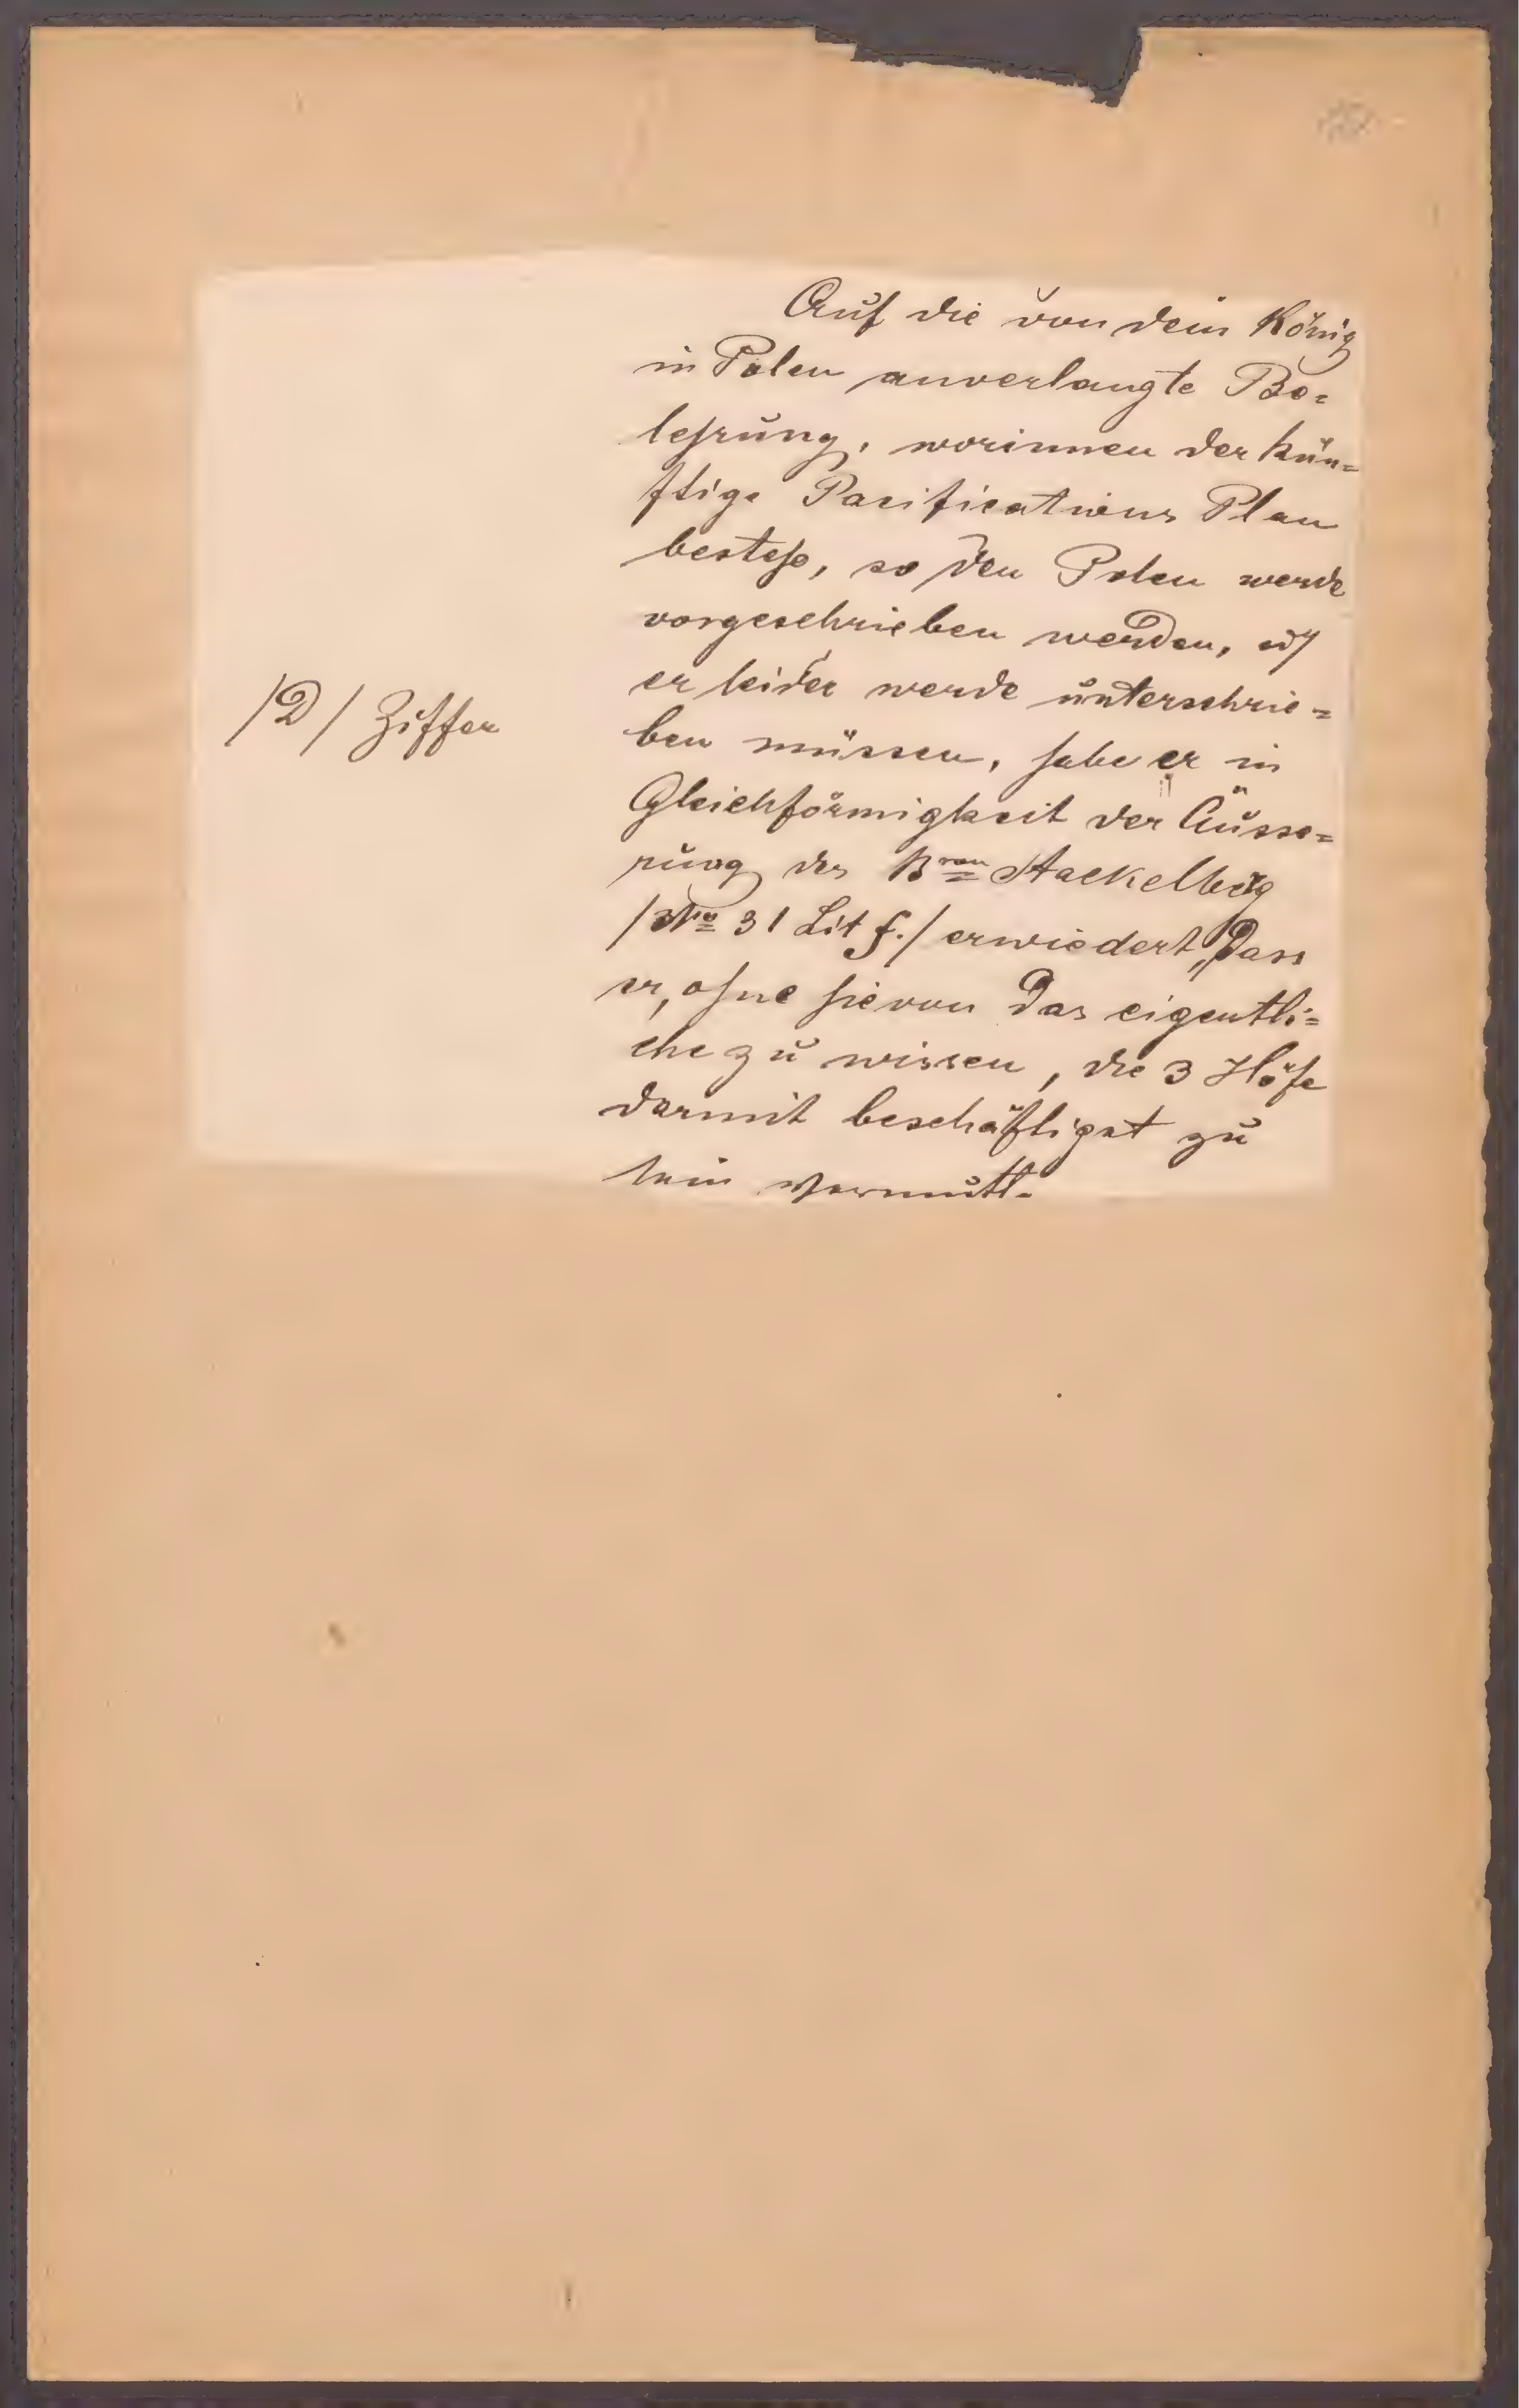 Auf die von dem König
in Polen anverlangte Be=
lehrung, worinnen der kün=
ftige Pacifications Plan
bestehe, so den Polen werde
vorgeschrieben werden, und
er leider werde unterschrie=
ben müssen, habe er in
/D/ Ziffer
Gleichförmigkeit der Äusse=
rung des Bron Stackelberg
/Nro 31 Lit f./ erwiedert „Dass
er, ohne hievon das eigentli=
che zu wissen, die 3 Höfe
darmit beschäftiget zu
sein vermuth.